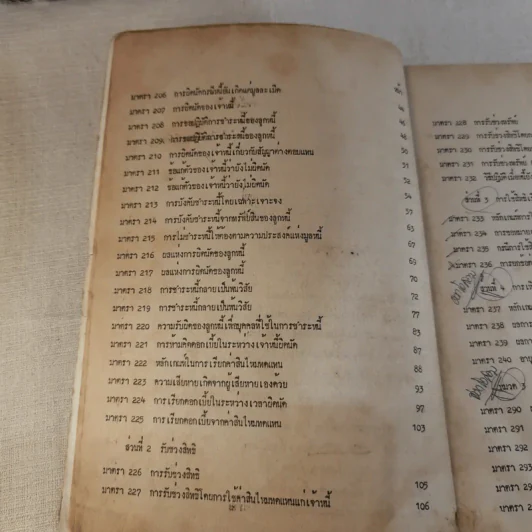 หน้า
มาตรา 206 การผิดนัดกรณีหนี้อันเกิดแต่มูลละเมิด
มาตรา 207 การผิดนัดของเจ้าหนี้
มาตรา 208 การขอปฏิบัติการชำระหนี้ของลูกหนี้
มาตรา 209 การขอปฏิบัติการชำระหนี้ของลูกหนี้
มาตรา 210 การผิดนัดของเจ้าหนี้เกี่ยวกับสัญญาต่างตอบแทน 50
มาตรา 211 ข้อแก้ตัวของเจ้าหนี้ว่ายังไม่ผิดนัด 51
มาตรา 212 ข้อแก้ตัวของเจ้าหนี้ว่ายังไม่ผิดนัด 52
มาตรา 213 การบังคับชำระหนี้โดยเฉพาะเจาะจง 54
มาตรา 214 การบังคับชำระหนี้จากทรัพย์สินของลูกหนี้
มาตรา 215 การไม่ชำระหนี้ให้ต้องตามความประสงค์แห่งมูลหนี้ 65
มาตรา 216 ผลแห่งการผิดนัดของลูกหนี้ 67
มาตรา 217 ผลแห่งการผิดนัดของลูกหนี้ 69
มาตรา 218 การชำระหนี้กลายเป็นพ้นวิสัย 70
มาตรา 219 การชำระหนี้กลายเป็นพ้นวิสัย 72
มาตรา 220 ความรับผิดของลูกหนี้เพื่อบุคคลที่ใช้ในการชำระหนี้ 77
มาตรา 221 การห้ามคิดดอกเบี้ยในระหว่างเจ้าหนี้ผิดนัด 83
มาตรา 222 หลักเกณฑ์ในการเรียกค่าสินไหมทดแทน 87
มาตรา 223 ความเสียหายเกิดจากผู้เสียหายเองด้วย 88
มาตรา 224 การเรียกดอกเบี้ยในระหว่างเวลาผิดนัด 93
มาตรา 225 การเรียกดอกเบี้ยจากค่าสินไหมทดแทน 103
ส่วนที่ 2 รับช่วงสิทธิ
มาตรา 226 การรับช่วงสิทธิ 105
มาตรา 227 การรับช่วงสิทธิโดยการใช้ค่าสินไหมทดแทนแก่เจ้าหนี้ 106
มาตรา 228 การรับช่วงทรัพย์
มาตรา 229 การรับช่วงสิทธิโดย
มาตรา 230 การรับช่วงสิทธิโดย
มาตรา 231 การรับช่วงทรัพย์
มาตรา 232
ส่วนที่ 3 การใช้สิทธิ
มาตรา 233 หลักเกณฑ์การ
มาตรา 234
มาตรา 235
มาตรา 236
ส่วนที่
มาตรา 237 หลักเกณ
มาตรา 238 ผลการ
มาตรา 239 ผลกา
มาตรา 240 อายุ
หมวด 3
มาตรา 290
มาตรา 291
มาตรา 292
มาตรา 293